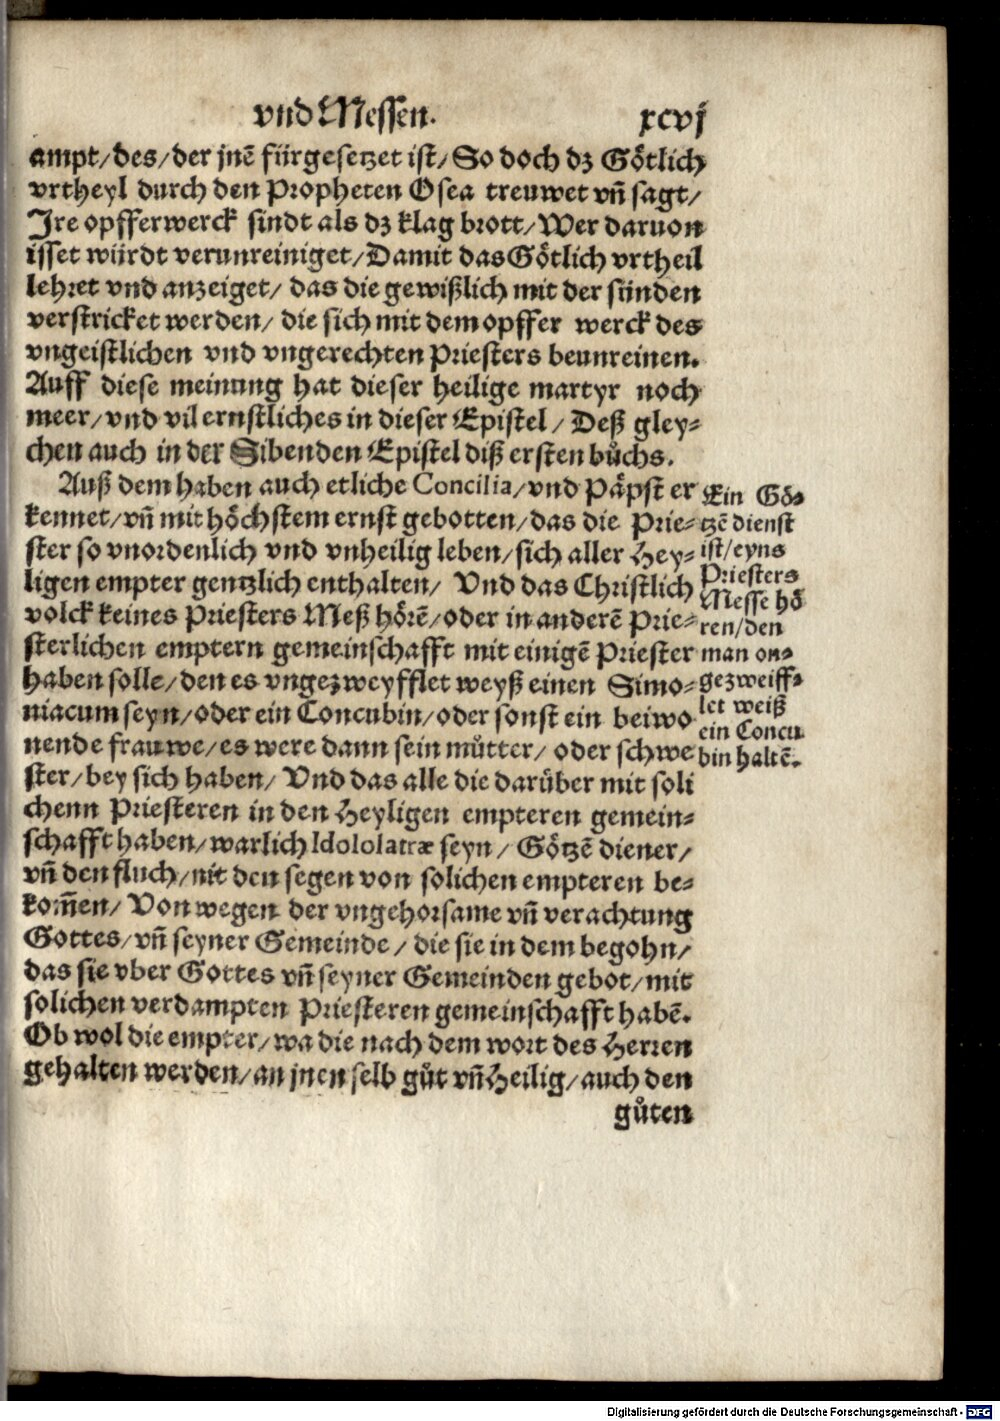 vnd Messen.
xcvj
ampt/des/der jnē fürgesetzet ist/So doch dz Götlich
vrtheyl durch den Propheten Osea treuwet vñ sagt/
Ire opfferwerck sindt als dz klag brott/Wer daruon
isset würdt verunreiniget/Damit das Götlich vrtheil
lehret vnd anzeiget/ das die gewißlich mit der sünden
verstricket werden/ die sich mit dem opffer werck des
vngeistlichen vnd vngerechten Priesters beunreinen.
Auff diese meinung hat dieser heilige martyr noch
meer/vnd vil ernstliches in dieser Epistel/ Deß gley-
chen auch in der Sibenden Epistel diß ersten bůchs.
Auß dem haben auch etliche Concilia/vnd Päpst er
kennet/vñ mit höchstem ernst gebotten/das die Prie-
ster so vnordenlich vnd vnheilig leben/sich aller Hey-
ligen empter gentzlich enthalten/ Vnd das Christlich
volck keines Priesters Meß hörē/oder in anderē Prie-
sterlichen emptern gemeinschafft mit einigē Priester
haben solle/den es vngezweyfflet weyß einen Simo-
niacum seyn/oder ein Concubin/oder sonst ein beiwo
nende frauwe/es were dann sein můtter/ oder schwe
ster/bey sich haben/ Vnd das alle die darüber mit soli
chenn Priesteren in den Heyligen empteren gemein-
schafft haben/warlich Idololatræ seyn/ Götzē diener/
vñ den fluch/nit den segen von solichen empteren be-
kom̄en/ Von wegen der vngehorsame vñ verachtung
Gottes/vñ seyner Gemeinde/ die sie in dem begohn/
das sie vber Gottes vñ seyner Gemeinden gebot/mit
solichen verdampten Priesteren gemeinschafft habē.
Ob wol die empter/wa die nach dem wort des Herren
gehalten werden/an jnen selb gůt vñ Heilig/auch den
gůten
Ein Gö-
tzē dienst
ist/eyns
Priesters
Messe hö
ren/den
man on-
gezweiff-
let weiß
ein Concu
bin haltē.
Digitalisierung gefördert durch die Deutsche Forschungsgemeinschaft - DFG